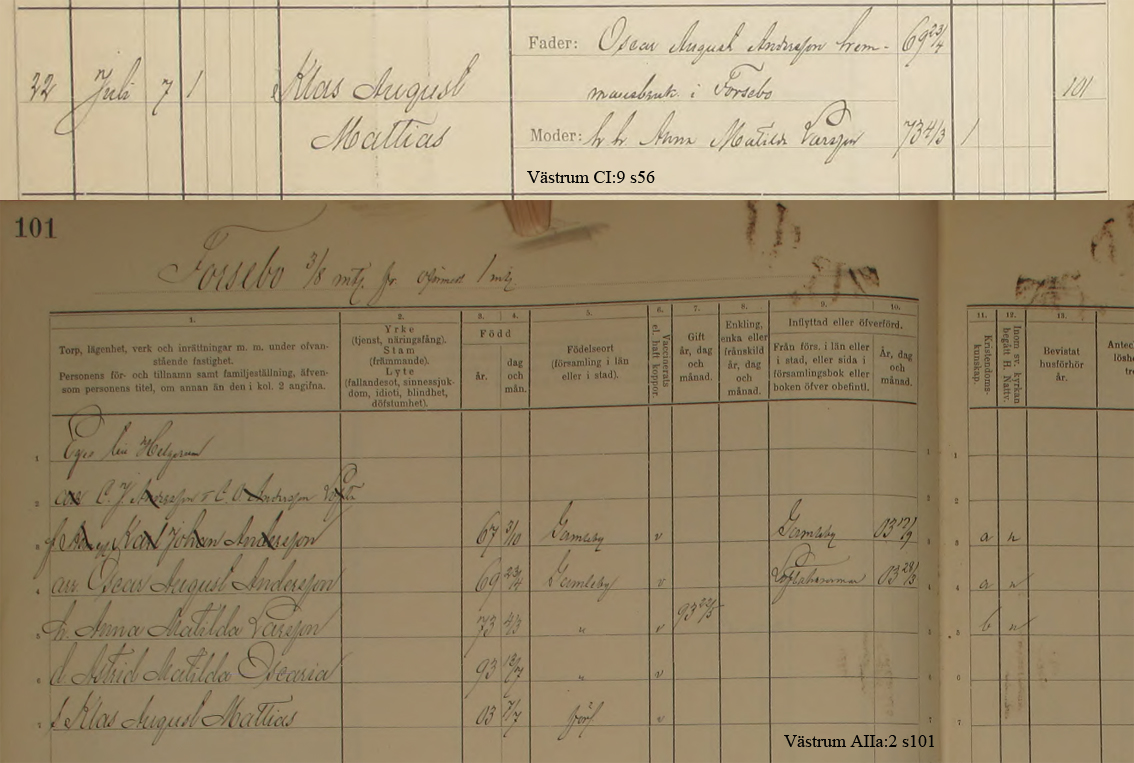 Fader: Oscar August Andersson hem- 69 23/4
22 Juli 7 1 Klas August mansbruk. i Forsebo 101
Mattias Moder: h h Anna Matilda Larsson 73 4/3 1
Västrum CI:9 s56
101
Forsebo 3/8 mtl. fr. 1 mtl
1. 2. 3. 4. 5. 6. 7. 8. 9. 10. 11. 12. 13.
Torp, lägenhet, verk och inrättningar m. m. under ofvan-
stående fastighet.
Personens för- och tillnamn samt familjeställning, äfven-
som personens titel, om annan än den i kol. 2 angifna.
Yrke
(tjenst, näringsfång).
Stam
(främmande).
Lyte
(fallandesot, sinnessjuk-
dom, idioti, blindhet,
döfstumhet).
Född
år.
dag
och
mån.
Födelseort
(församling i län
eller i stad).
Vaccinerats
el. haft koppor.
Gift
år, dag
och
månad.
Enkling,
enka eller
frånskild
år, dag
och
månad.
Inflyttad eller öfverförd.
Från förs. i län eller
i stad, eller sida i
församlingsbok eller
boken öfver obefintl.
År, dag
och
månad.
Kristendoms-
kunskap.
Inom sv. kyrkan
begått H. Nattv.
Bevistat
husförhör
år.
1 1
2 C. J. Andersson C O Andersson 2
3 Karl Johan Andersson 67 5/10 Gamleby v Gamleby 03 3 a n
4 Oscar August Andersson 69 23/4 Gamleby v 03 4 a n
5 h. Anna Matilda Larsson 73 4/3 " v 93 5 b n
6 d. Astrid Matilda Oscaria 93 " v 6
7 Klas August Mattias 03 7/7 v 7
Västrum AIIa:2 s101